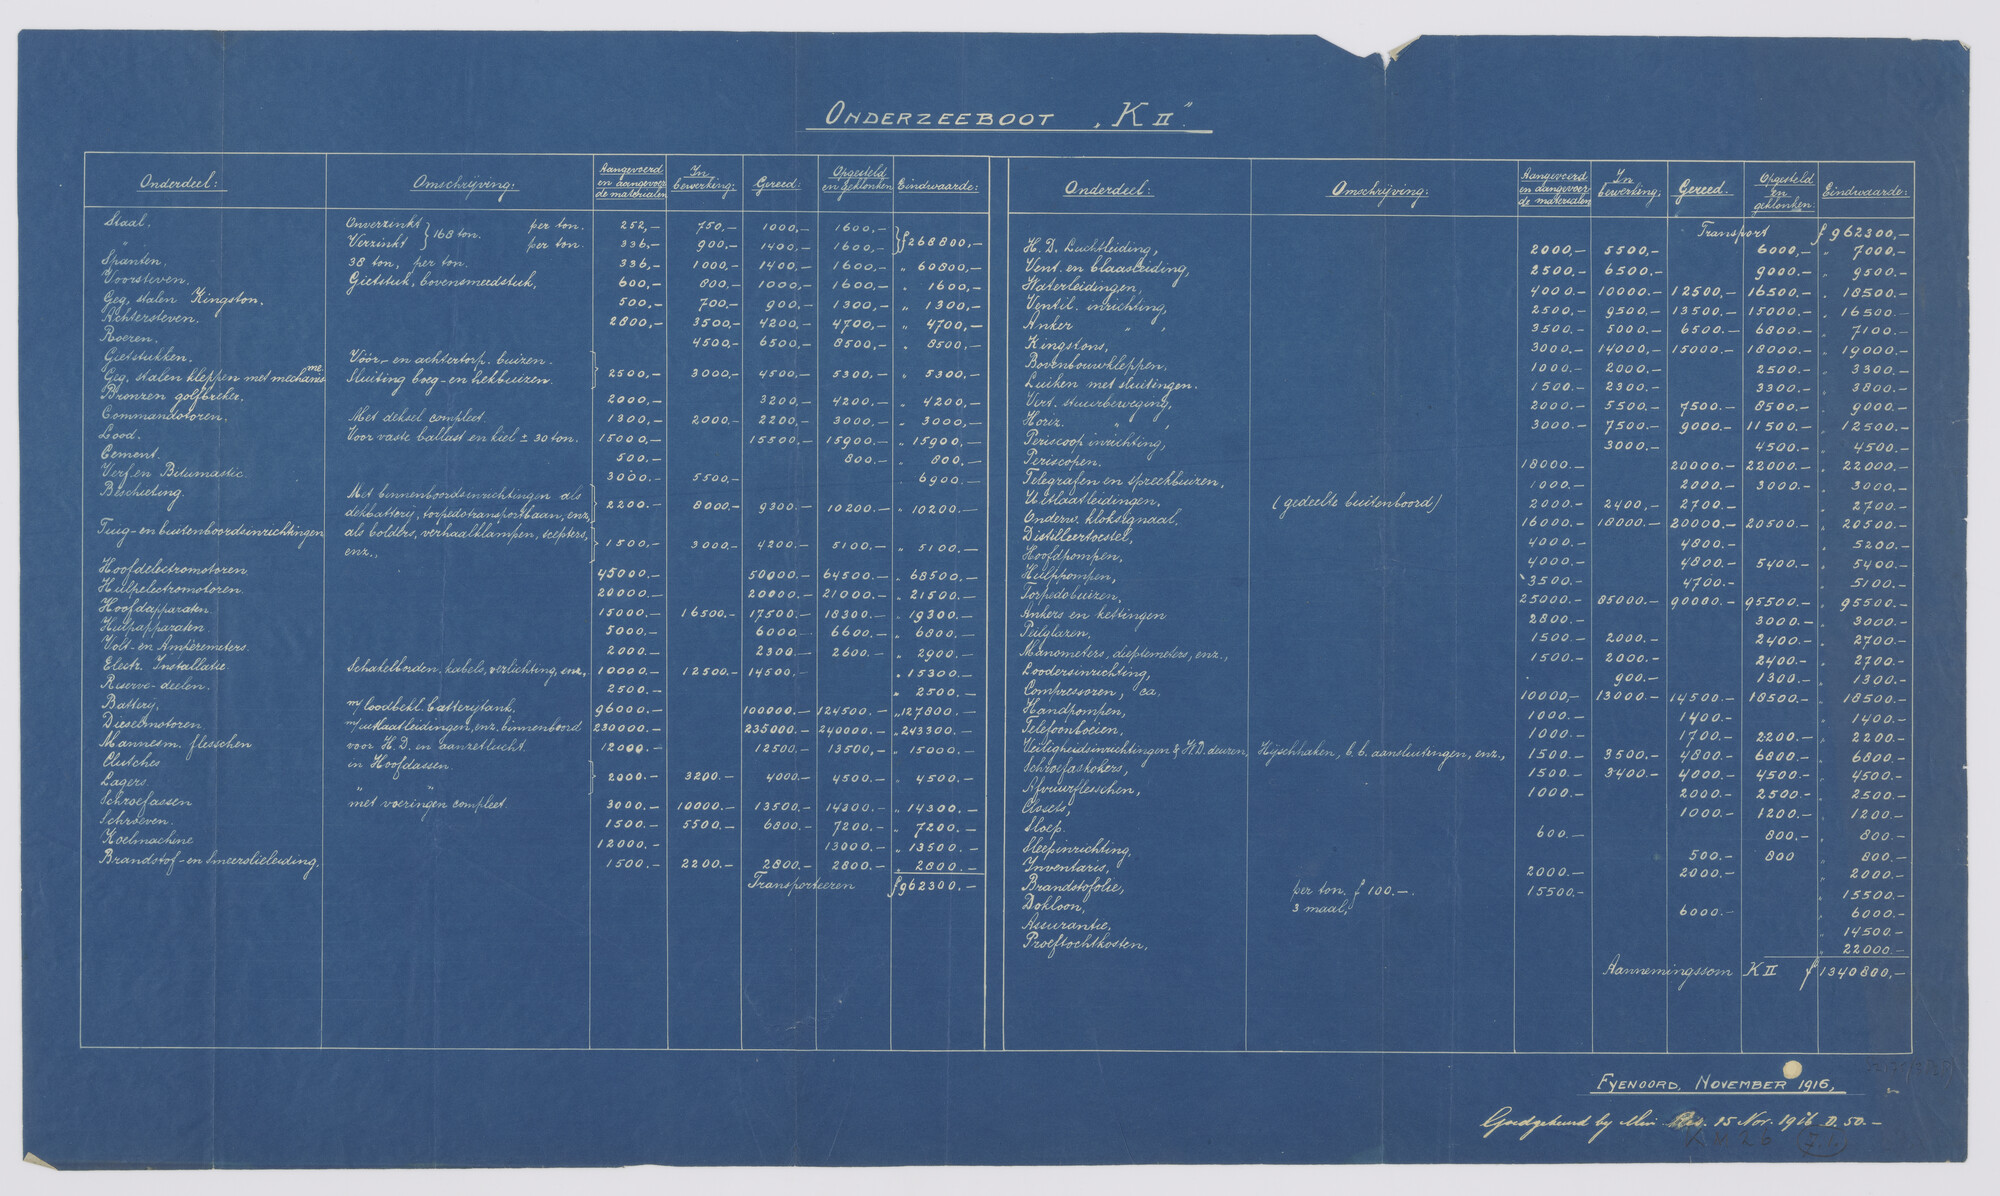 ONDERZEEBOOT „K II"
Onderdeel: Omschrijving: Aangevoerd en aangevoerde materialen In bewerking: Gereed: Opgesteld en geklonken Eindwaarde:
Staal. Onverzinkt } 168 ton. per ton. 252,- 750,- 1000,- 1600,- } ƒ268800,-
" Verzinkt per ton. 336,- 900,- 1400,- 1600,-
Spanten. 38 ton, per ton. 336,- 1000,- 1400,- 1600,- " 60800,-
Voorsteven. Gietstuk, bovensmeedstuk, 600,- 800,- 1000,- 1600,- " 1600,-
Geg. stalen Kingston. 500,- 700,- 900,- 1300,- " 1300,-
Achtersteven. 2800,- 3500,- 4200,- 4700,- " 4700,-
Roeren. 4500,- 6500,- 8500,- " 8500,-
Gietstukken. Vóór- en achtertorp. buizen. } 2500,- 3000,- 4500,- 5300,- " 5300,-
Geg. stalen kleppen met mechanisme. Sluiting boeg- en hekbuizen.
Bronzen golfbreker. 2000,- 3200,- 4200,- " 4200,-
Commandotoren. Met deksel compleet. 1300,- 2000,- 2200,- 3000,- " 3000,-
Lood. Voor vaste ballast en kiel ± 30 ton. 15000,- 15500,- 15900,- " 15900,-
Cement. 500.- 800.- " 800,-
Verf en Bitumastic. 3000.- 5500.- " 6900.-
Beschieting. Met binnenboordsinrichtingen als dekbatterij, torpedotransportbaan, enz. } 2200.- 8000.- 9300.- 10200.- " 10200.-
Tuig- en buitenboordsinrichtingen als bolders, verhaalklampen, scepters, enz., } 1500.- 3000.- 4200.- 5100.- " 5100.-
Hoofdelectromotoren. 45000.- 50000.- 64500.- " 68500.-
Hulpelectromotoren. 20000.- 20000.- 21000.- " 21500.-
Hoofdapparaten. 15000.- 16500.- 17500.- 18300.- " 19300.-
Hulpapparaten. 5000.- 6000.- 6600.- " 6800.-
Volt- en Ampèremeters. 2000.- 2300.- 2600.- " 2900.-
Electr. Installatie. Schakelborden, kabels, verlichting, enz., 10000.- 12500.- 14500.- " 15300.-
Riserve-deelen. 2500.- " 2500.-
Battery, m/ loodbekl. batterytank. 96000.- 100000.- 124500.- " 127800.-
Dieselmotoren. m/ uitlaatleidingen, enz. binnenboord 230000.- 235000.- 240000.- " 243300.-
Mannesm. flesschen voor H.D. en aanzetlucht. 12000.- 12500.- 13500.- " 15000.-
Clutches in Hoofdassen. } 2000.- 3200.- 4000.- 4500.- " 4500.-
Lagers " "
Schroefassen met voeringen compleet. 3000.- 10000.- 13500.- 14300.- " 14300.-
Schroeven. 1500.- 5500.- 6800.- 7200.- " 7200.-
Koelmachine 12000.- 13000.- " 13500.-
Brandstof- en Smeerolieleiding. 1500.- 2200.- 2800.- 2800.- " 2800.-
Transporteeren ƒ962300.-
Onderdeel: Omschrijving: Aangevoerd en aangevoerde materialen In bewerking: Gereed. Opgesteld en geklonken. Eindwaarde:
Transport ƒ962300,-
H. D. Luchtleiding, 2000.- 5500.- 6000.- " 7000.-
Vent. en blaasleiding, 2500.- 6500.- 9000.- " 9500.-
Waterleidingen, 4000.- 10000.- 12500.- 16500.- " 18500.-
Ventil. inrichting, 2500.- 9500.- 13500.- 15000.- " 16500.-
Anker " , 3500.- 5000.- 6500.- 6800.- " 7100.-
Kingstons, 3000.- 14000.- 15000.- 18000.- " 19000.-
Bovenbouwkleppen, 1000.- 2000.- 2500.- " 3300.-
Luiken met sluitingen. 1500.- 2300.- 3300.- " 3800.-
Vert. stuurbeweging, 2000.- 5500.- 7500.- 8500.- " 9000.-
Horiz. " , 3000.- 7500.- 9000.- 11500.- " 12500.-
Periscoop inrichting, 3000.- 4500.- " 4500.-
Periscopen. 18000.- 20000.- 22000.- " 22000.-
Telegrafen en spreekbuizen, 1000.- 2000.- 3000.- " 3000.-
Uitlaatleidingen, (gedeelte buitenboord) 2000.- 2400.- 2700.- " 2700.-
Onderw. kloksignaal, 16000.- 18000.- 20000.- 20500.- " 20500.-
Distilleertoestel, 4000.- 4800.- " 5200.-
Hoofdpompen, 4000.- 4800.- 5400.- " 5400.-
Hulppompen, 3500.- 4700.- " 5100.-
Torpedobuizen, 25000.- 85000.- 90000.- 95500.- " 95500.-
Ankers en kettingen 2800.- 3000.- " 3000.-
Peilglazen, 1500.- 2000.- 2400.- " 2700.-
Manometers, dieptemeters, enz., 1500.- 2000.- 2400.- " 2700.-
Loodersinrichting, 900.- 1300.- " 1300.-
Compressoren, ca. 10000,- 13000.- 14500.- 18500.- " 18500.-
Handpompen, 1000.- 1400.- " 1400.-
Telefoonboeien, 1000.- 1700.- 2200.- " 2200.-
Veiligheidsinrichtingen & W.D. deuren, Hijschhaken, b.b. aansluitingen, enz., 1500.- 3500.- 4800.- 6800.- " 6800.-
Schroefaskokers, 1500.- 3400.- 4000.- 4500.- " 4500.-
Afvuurflesschen, 1000.- 2000.- 2500.- " 2500.-
Closets, 1000.- 1200.- " 1200.-
Sloep. 600.- 800.- " 800.-
Sleepinrichting, 500.- 800 " 800.-
Inventaris, 2000.- 2000.- " 2000.-
Brandstofolie, per ton. ƒ 100.-. 15500.- " 15500.-
Dokloon, 3 maal, 6000.- " 6000.-
Assurantie, " 14500.-
Proeftochtkosten, " 22000.-
Aannemingssom K II ƒ1340800,-
FYENOORD, NOVEMBER 1916,
Goedgekeurd by Min. Res. 15 Nov. 1916 D. 50.-